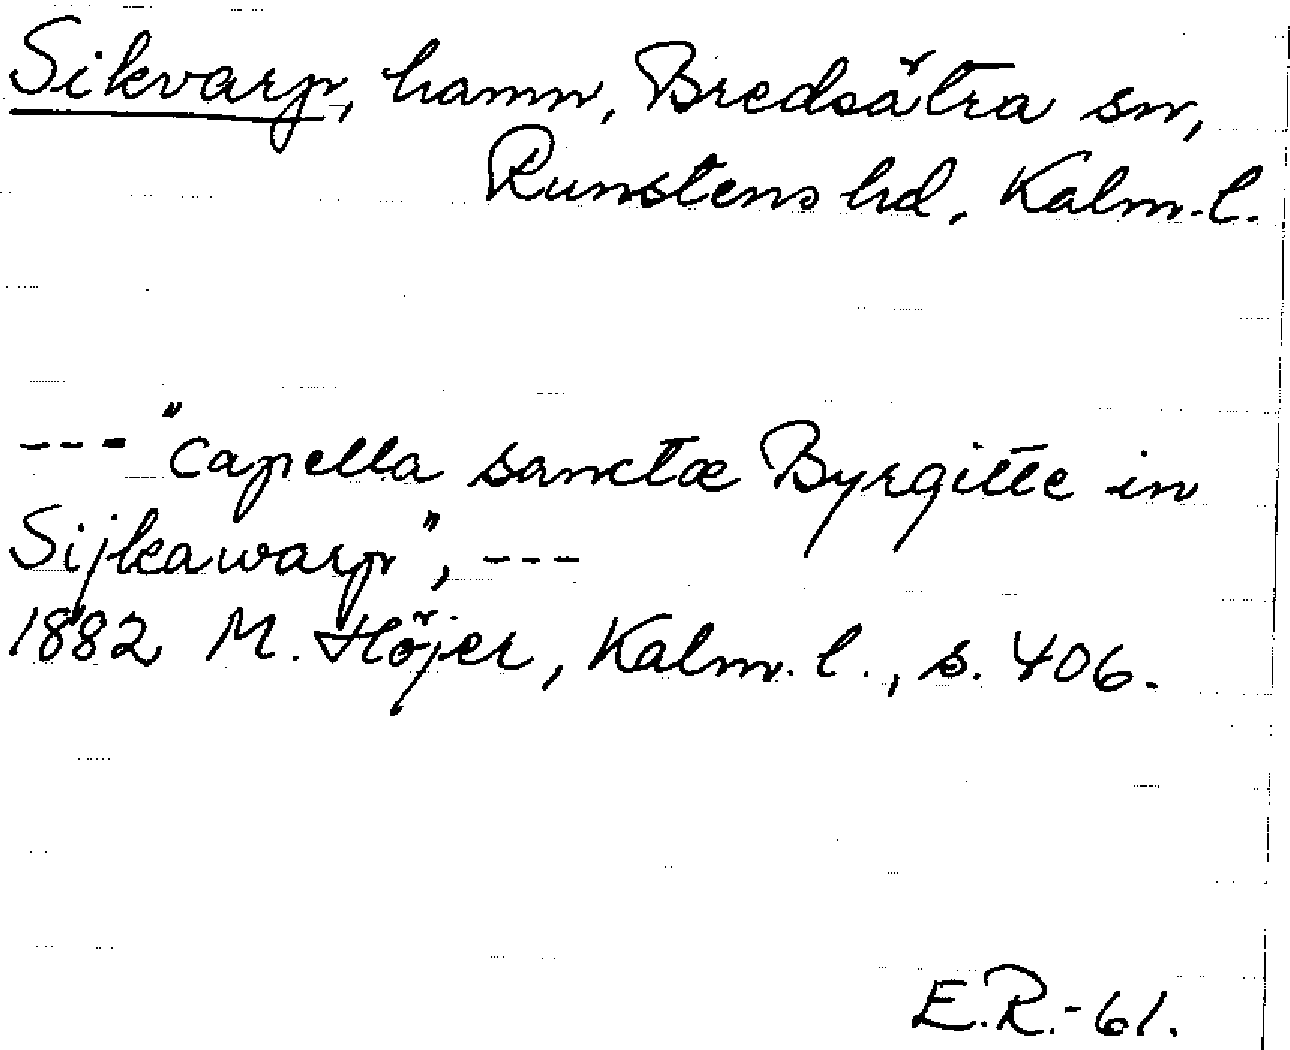 Sikvarp, hamn, Bredsätra sn,
Runstens hd, Kalm. l.
--- "capella sanctæ Byrgitte in
Sijkawarp", ---
1882 M. Höjer, Kalm. l., s. 406.
E.R.-61.